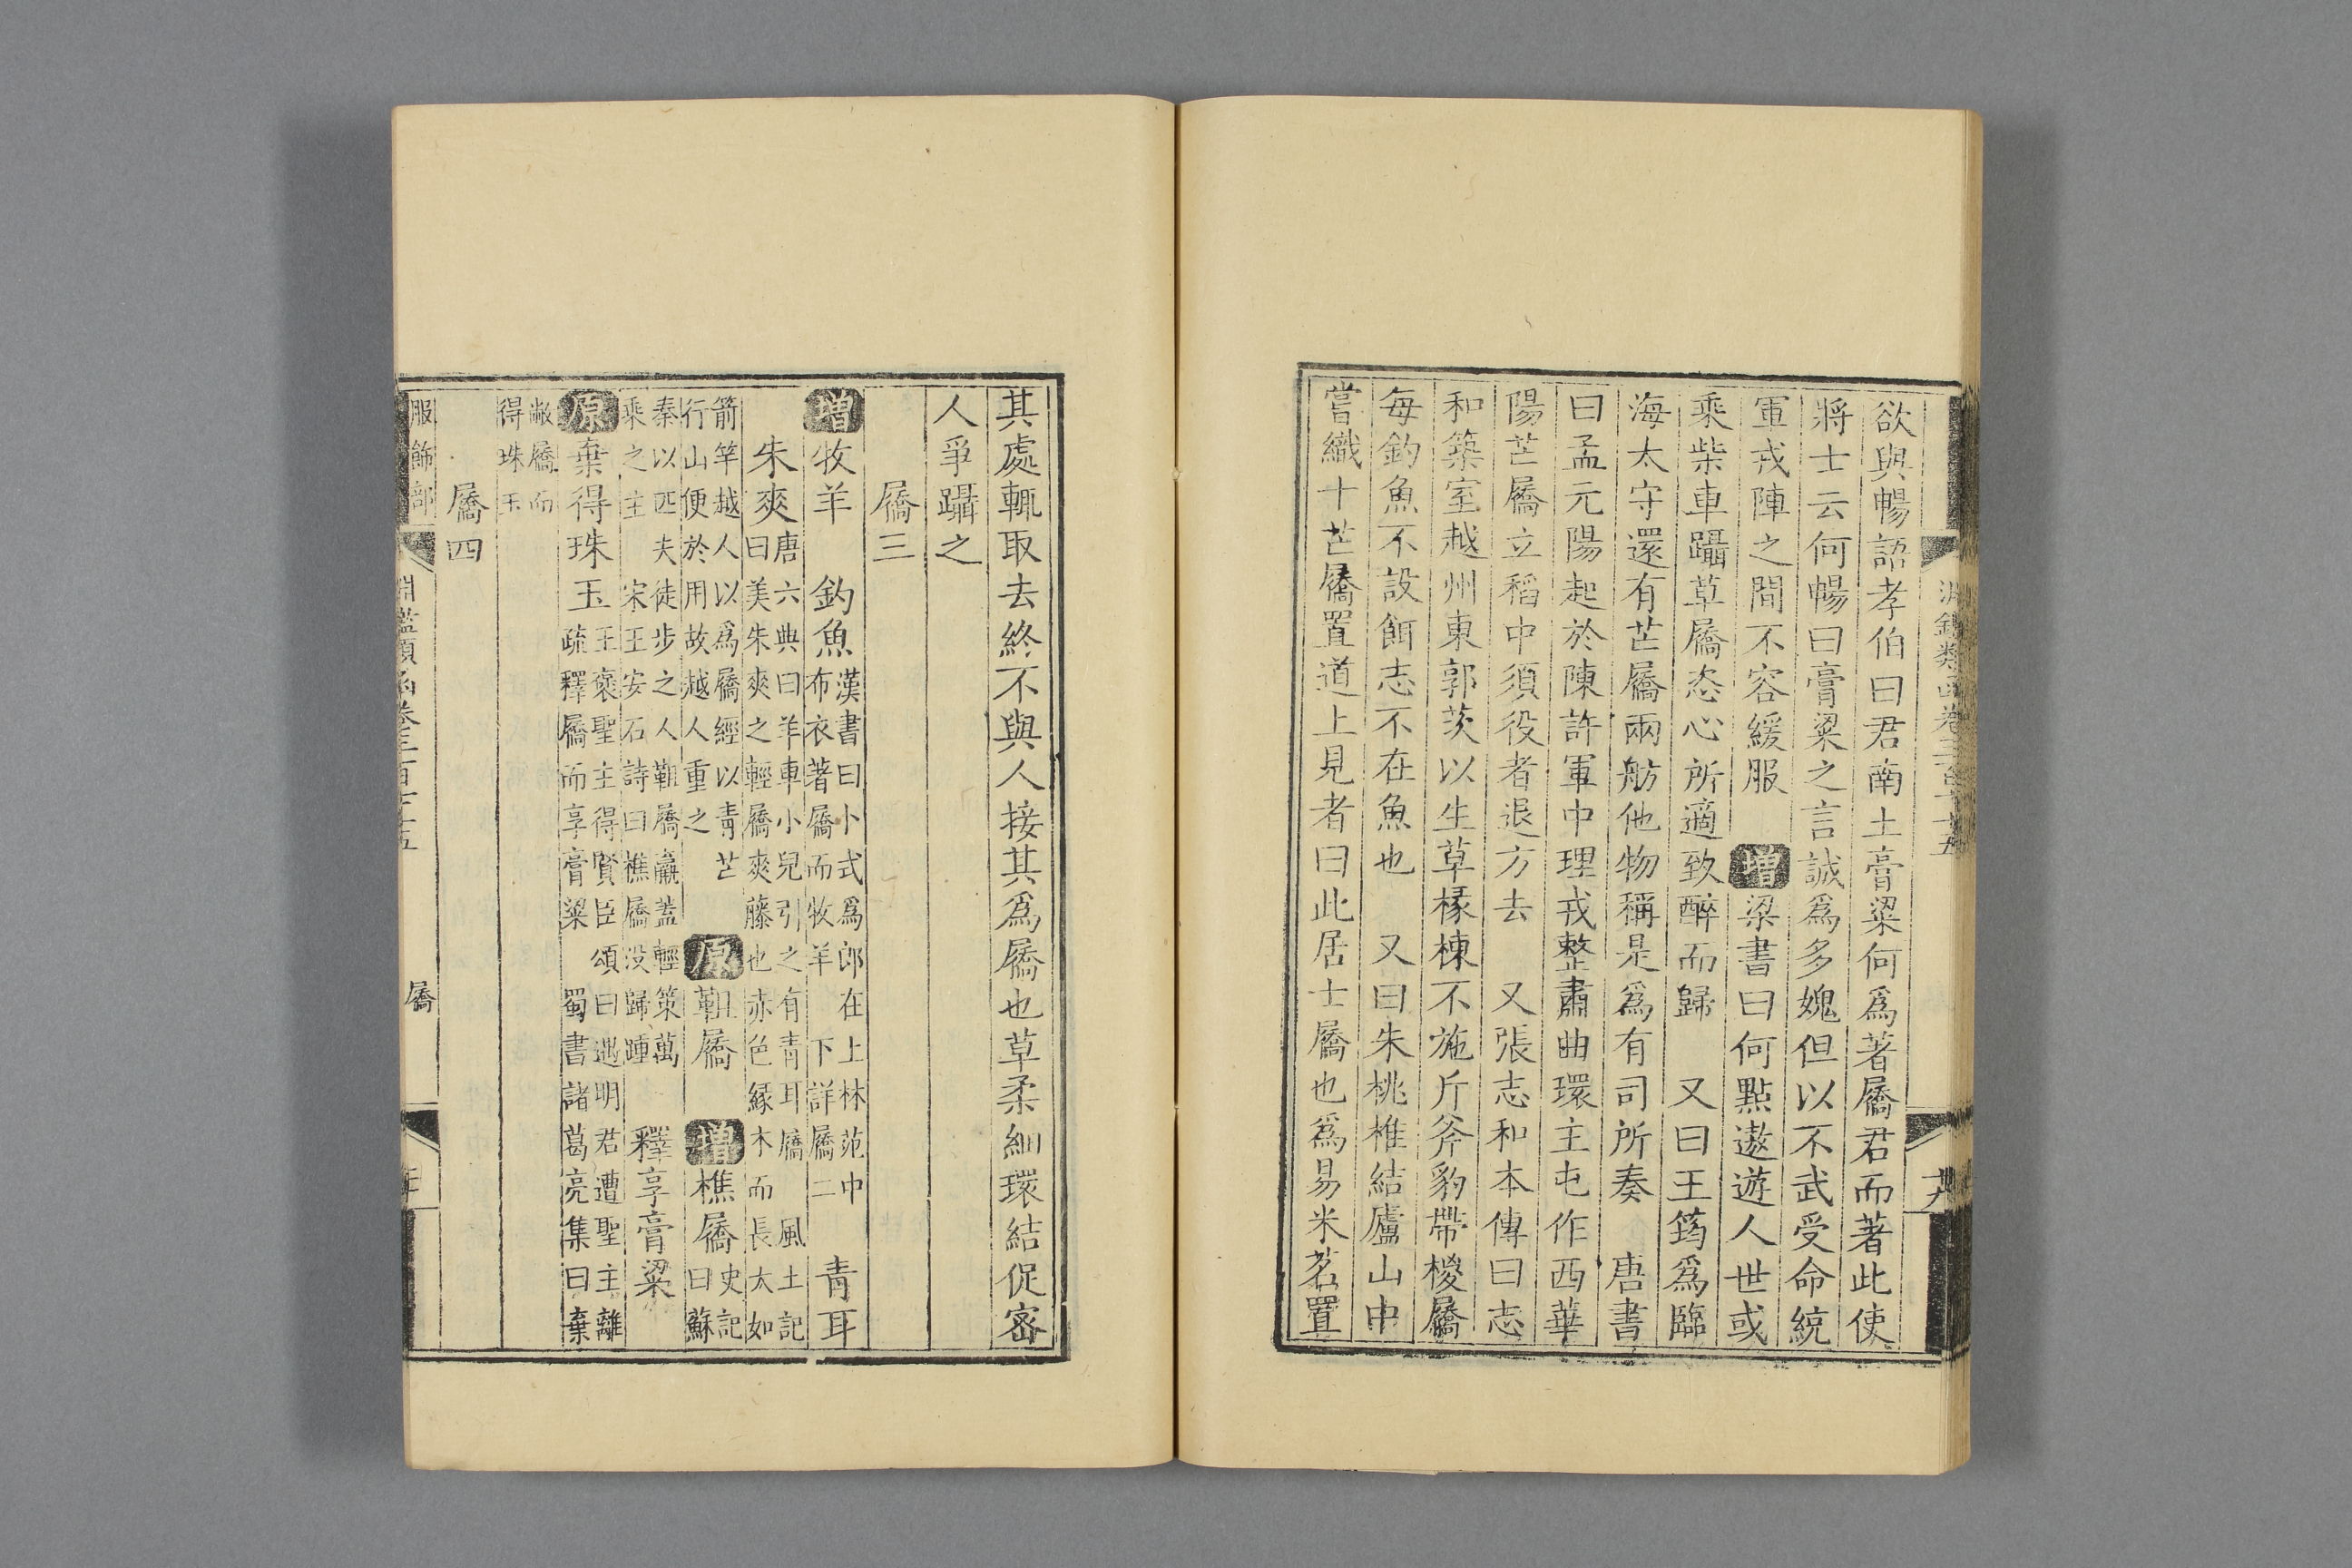 欲與暢語孝伯曰君南土膏粱何爲著屩君而著此使
將士云何暢曰膏粱之言誠爲多媿但以不武受命統
軍戎陣之間不容緩服 增梁書曰何點遨遊人世或
乘柴車躡草屩恣心所適致醉而歸 又曰王筠爲臨
海太守還有芒屩兩舫他物稱是爲有司所奏 唐書
曰孟元陽起於陳許軍中理戎整肅曲環主屯作西華
陽芒屩立稻中須役者退方去 又張志和本傳曰志
和築室越州東郭茨以生草椽棟不施斤斧豹帶椶屩
每釣魚不設餌志不在魚也 又曰朱桃椎結廬山中
嘗織十芒屩置道上見者曰此居士屩也爲易米茗置
其處輒取去終不與人接其爲屩也草柔細環結促密
人爭躡之
屩三
增牧羊 釣魚 漢書曰卜式爲郎在上林苑中
布衣著屩而牧羊 下詳屩二 青耳
朱爽 唐六典曰羊車小兒引之有青耳屩 風土記
曰美朱爽之輕屩爽藤也赤色緣木而長大如
箭竿越人以爲屩經以青芒
行山便於用故越人重之 原靼屩 增樵屩 史記
曰蘇
秦以匹夫徒步之人靼屩羸蓋輕策萬
乘之主 宋王安石詩曰樵屩没歸踵 釋享膏粱
原棄得珠玉 王褒聖主得賢臣頌曰逃明君遭聖主離
疏釋屩而享膏粱 蜀書諸葛亮集曰棄
敝屩而
得珠玉
屩四
服飾部 淵鑑類函卷三百七十五 屩